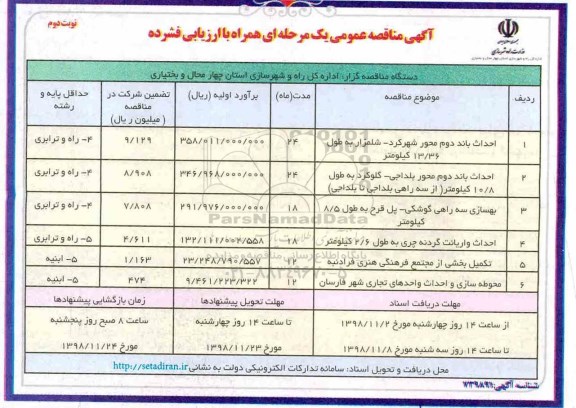 نوبت دوم
آگهی مناقصه عمومی یک مرحله ای همراه با ارزیابی فشرده
دستگاه مناقصه گزار: اداره کل راه و شهرسازی استان چهار محال و بختیاری
ردیف موضوع مناقصه مدت(ماه) برآورد اولیه (ریال) تضمین شرکت در مناقصه (میلیون ریال) حداقل پایه و رشته
۱ احداث باند دوم محور شهرکرد- شلمزار به طول ۱۳/۳۶ کیلومتر ۲۴ ۳۵۸/۰۱۱/۰۰۰/۰۰۰ ۹/۱۲۹ ۴- راه و ترابری
۲ احداث باند دوم محور بلداجی- گلوگرد به طول ۱۰/۸ کیلومتر( از سه راهی بلداجی تا بلداجی) ۲۴ ۳۴۶/۹۶۸/۰۰۰/۰۰۰ ۸/۹۰۸ ۴- راه و ترابری
۳ بهسازی سه راهی گوشکی- پل قرح به طول ۸/۵ کیلومتر ۱۸ ۲۹۱/۹۷۶/۰۰۰/۰۰۰ ۷/۸۰۸ ۴- راه و ترابری
۴ احداث واریانت گردنه چری به طول ۲/۶ کیلومتر ۱۸ ۱۳۲/۱۱۱/۰۰۲/۵۵۸ ۴/۶۱۱ ۵- راه و ترابری
۵ تکمیل بخشی از مجتمع فرهنگی هنری فرادنبه ۱۲ ۲۳/۲۴۸/۷۹۰/۵۵۷ ۱/۱۶۳ ۵- ابنیه
۶ محوطه سازی و احداث واحدهای تجاری شهر فارسان ۱۲ ۹/۴۶۱/۲۲۳/۳۲۲ ۴۷۴ ۵- ابنیه
مهلت دریافت اسناد مهلت تحویل پیشنهادها زمان بازگشایی پیشنهادها
از ساعت ۱۴ روز چهارشنبه مورخ ۱۳۹۸/۱۱/۲ تا ساعت ۱۴ روز چهارشنبه ساعت ۸ صبح روز پنجشنبه
تا ساعت ۱۴ روز سه شنبه مورخ ۱۳۹۸/۱۱/۸ مورخ ۱۳۹۸/۱۱/۲۳ مورخ ۱۳۹۸/۱۱/۲۴
محل دریافت و تحویل اسناد: سامانه تدارکات الکترونیکی دولت به نشانی http://setadiran.ir
شناسه آگهی: ۷۳۹۸۹۱
ParsNamadData
۰۲۱-۸۸۳۴۹۶۷۰-۵